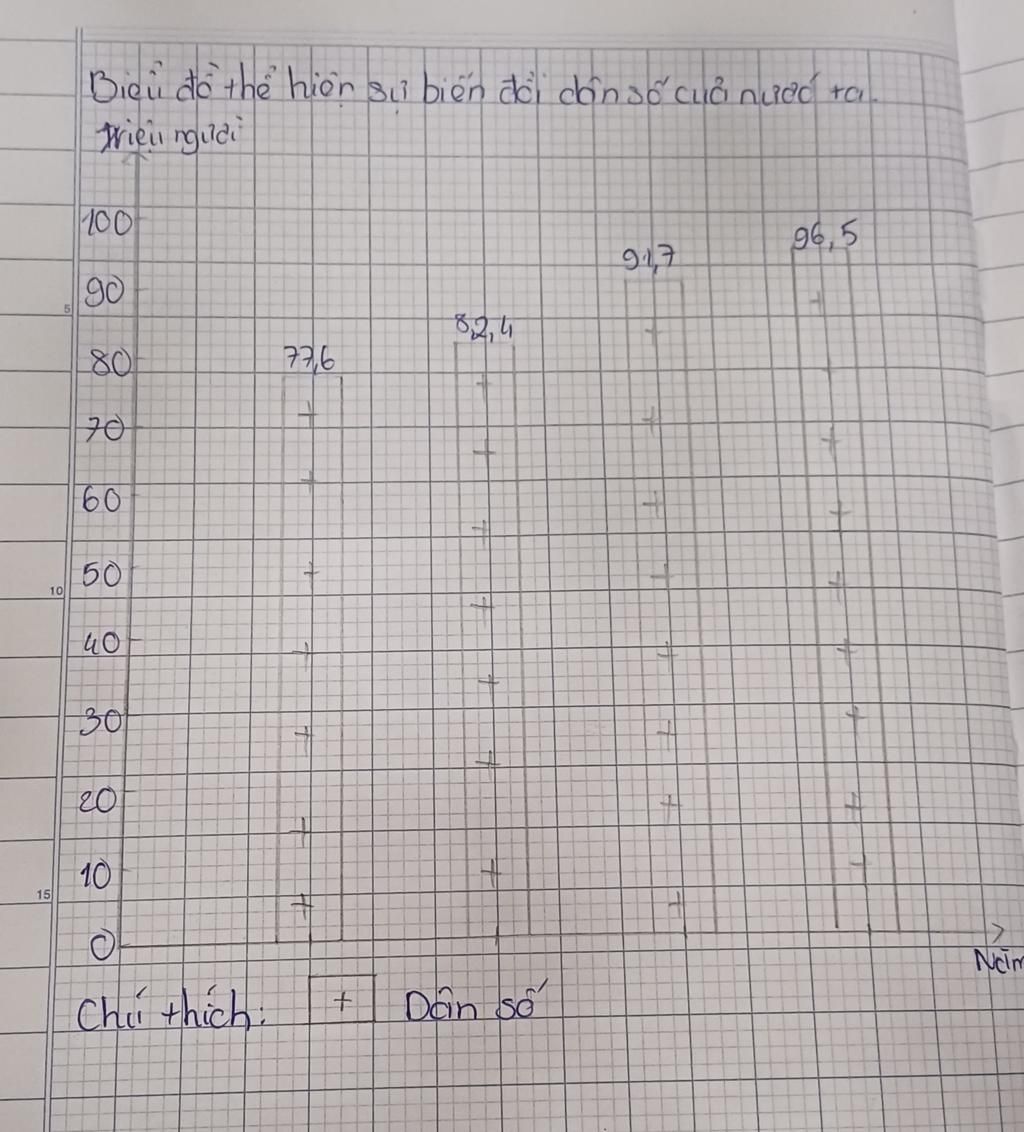 Biểu đồ thể hiện sự biến đổi dân số của nước ta.
triệu người
100
96,5
91,7
90
82,4
80
77,6
70
60
50
40
30
20
10
0
Năm
Chú thích: + Dân số
5
10
15